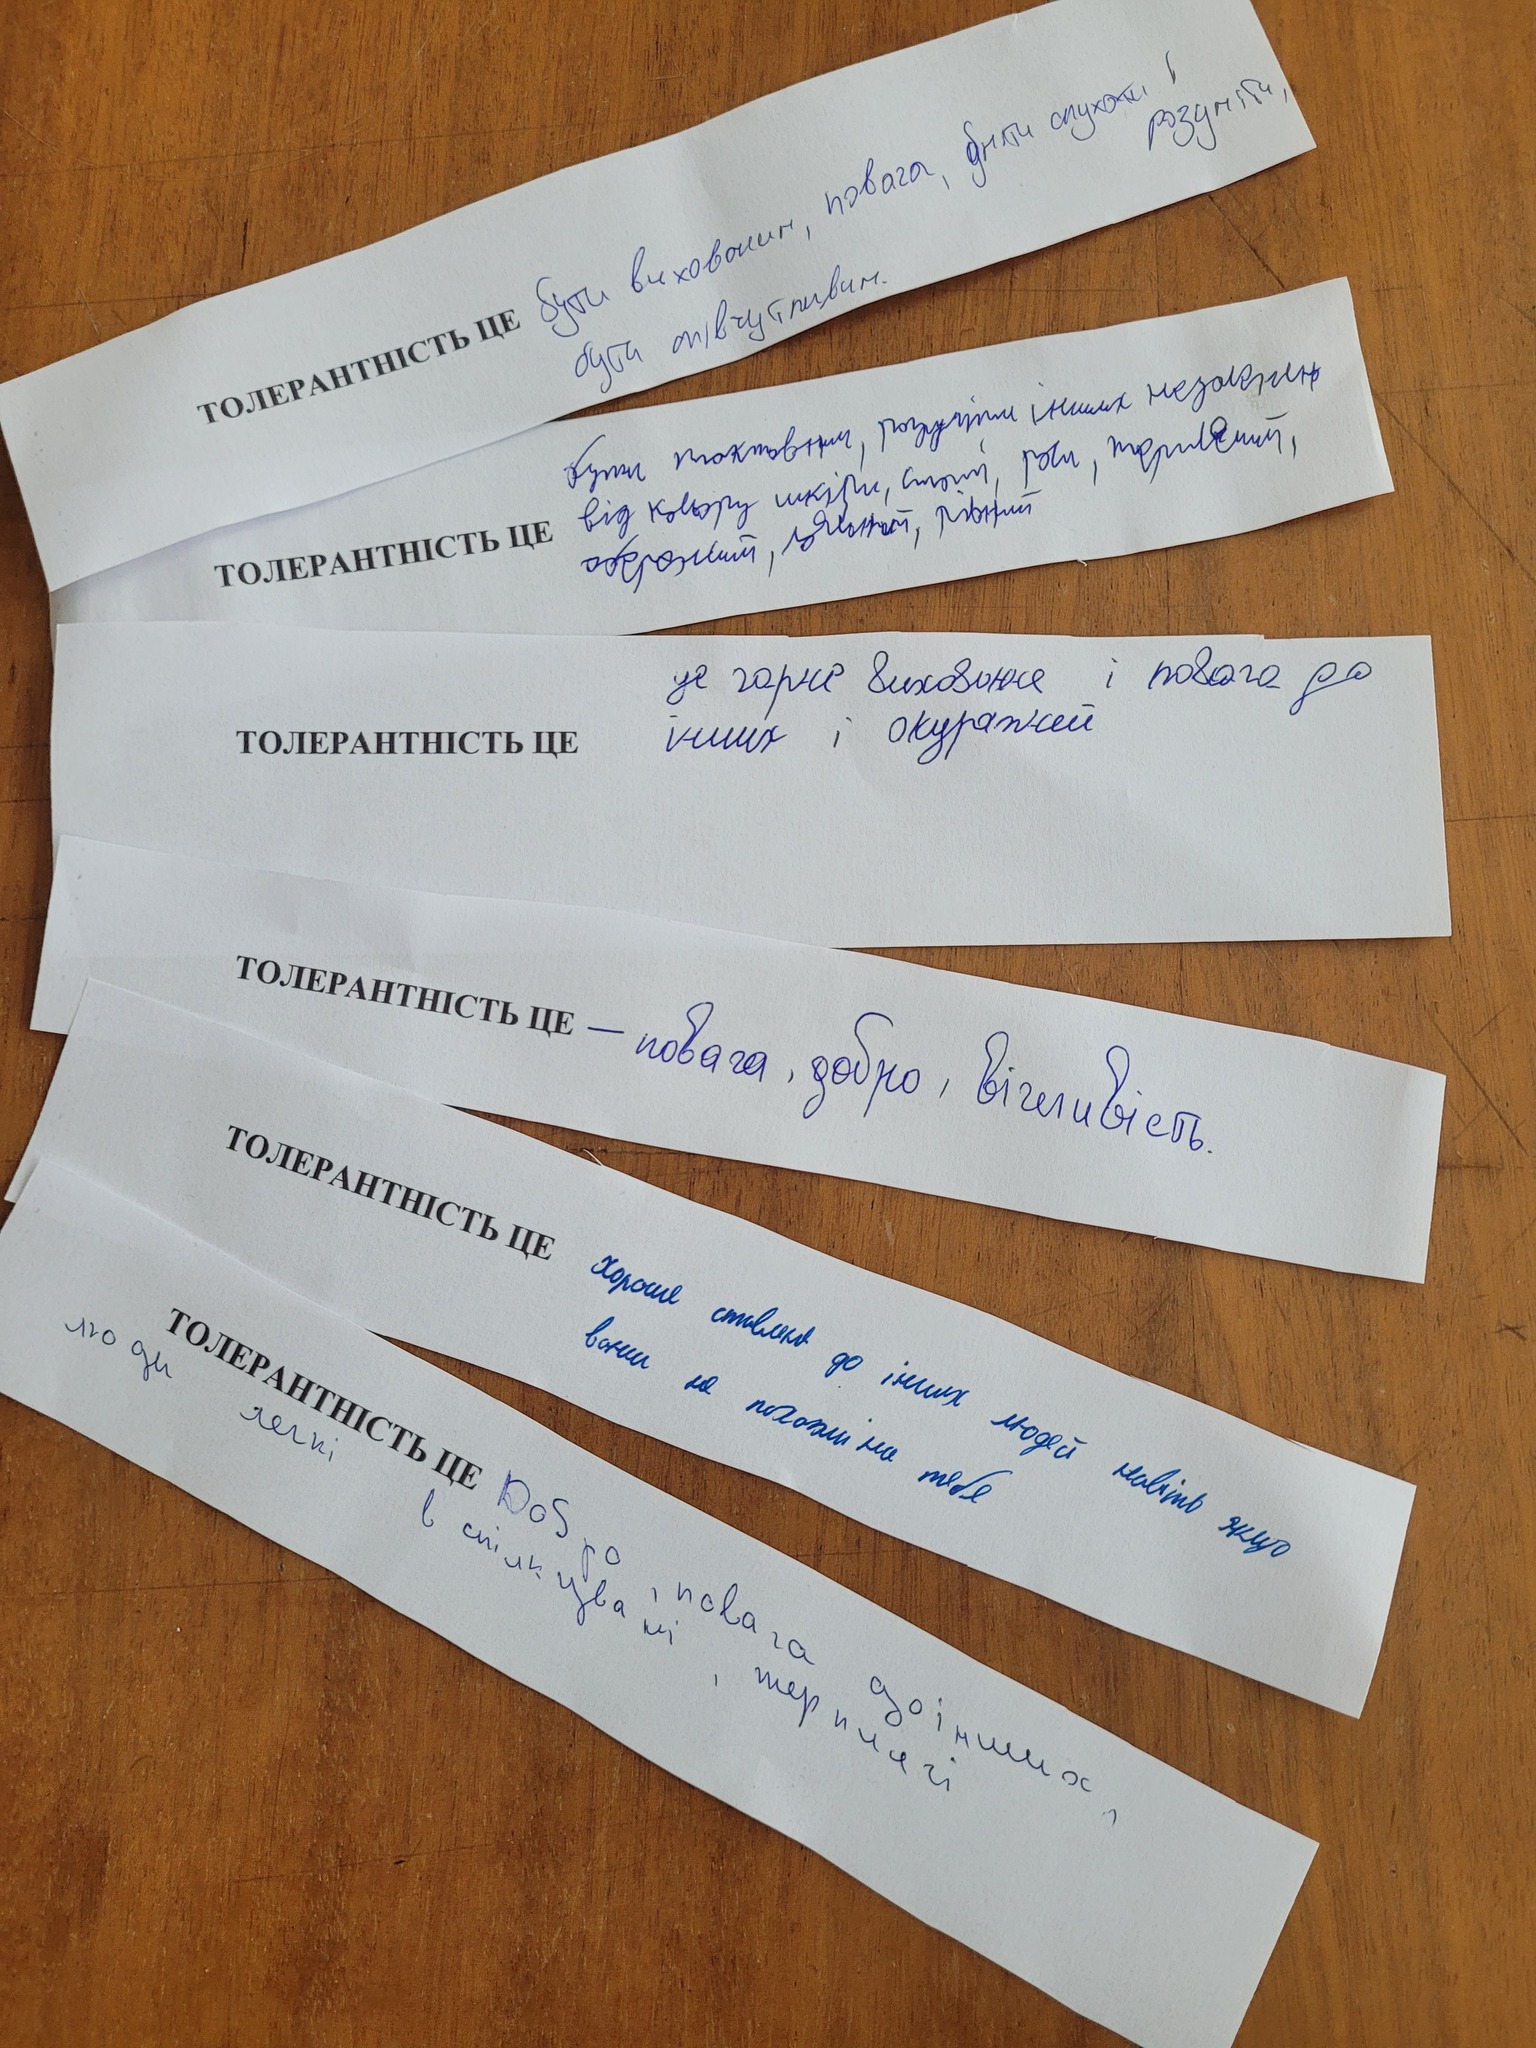 ТОЛЕРАНТНІСТЬ ЦЕ бути вихованим, повага, вміти слухати і розуміти,
бути співчутливим.
ТОЛЕРАНТНІСТЬ ЦЕ бути тактовним, розуміти інших незалежно
від кольору шкіри, статі, раси, терплячий,
обережний, рівний
ТОЛЕРАНТНІСТЬ ЦЕ це гарне виховання і повага до
інших і окуражней
ТОЛЕРАНТНІСТЬ ЦЕ – повага, добро, вічливість.
ТОЛЕРАНТНІСТЬ ЦЕ хороше ставлення до інших людей навіть якщо
вони не похожи на тебе
ТОЛЕРАНТНІСТЬ ЦЕ Добро, повага до інших,
люди легкі в спілкувані, терплячі